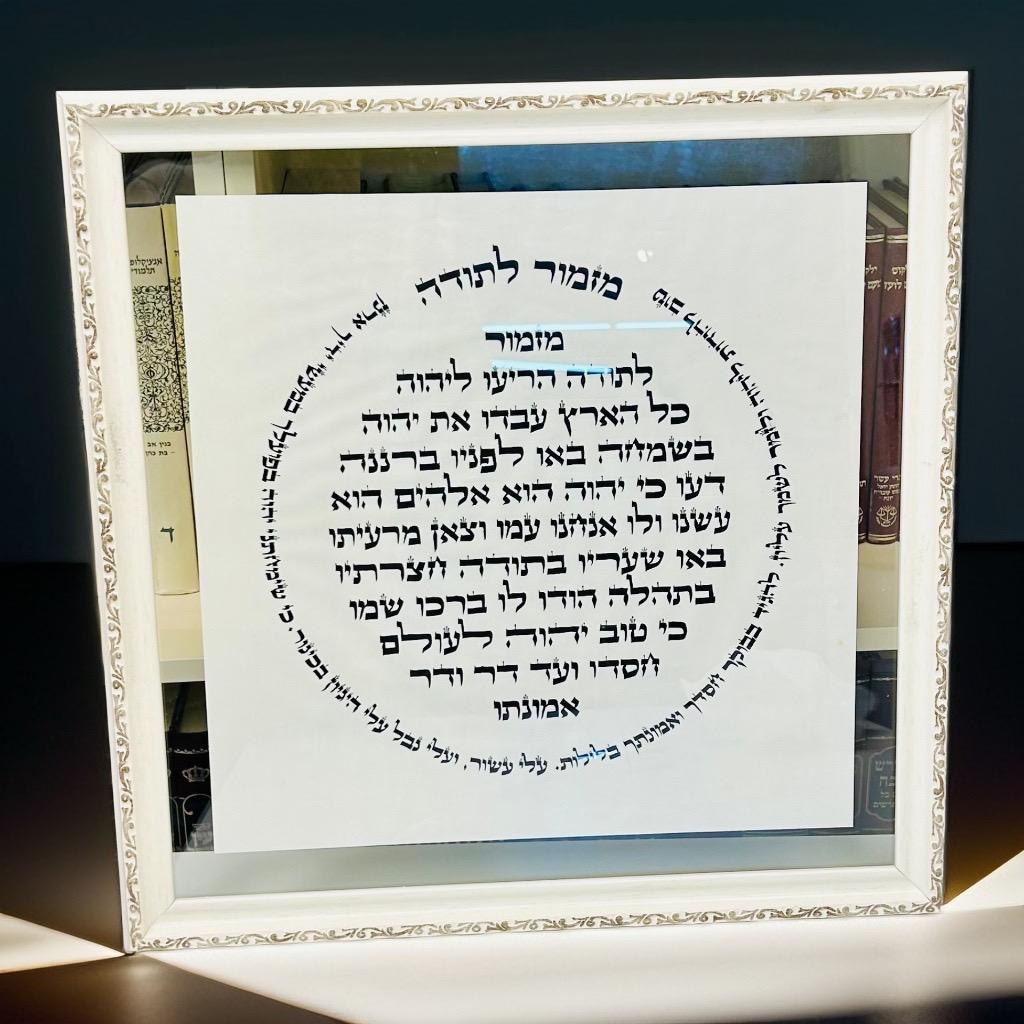 מזמור לתודה
מזמור
לתודה הריעו ליהוה
כל הארץ עבדו את יהוה
בשמחה באו לפניו ברננה
דעו כי יהוה הוא אלהים הוא
עשנו ולו אנחנו עמו וצאן מרעיתו
באו שעריו בתודה חצרתיו
בתהלה הודו לו ברכו שמו
כי טוב יהוה לעולם
חסדו ועד דר ודר
אמונתו
טוב להודות ליהוה ולזמר לשמך עליון. להגיד בבוקר חסדך ואמונתך בלילות. עלי עשור, ועלי נבל עלי הגיון בכנור. כי שימחתני יהוה בפעלך במעשי ידיך ארנן
תלמודית
בנין אב
ד